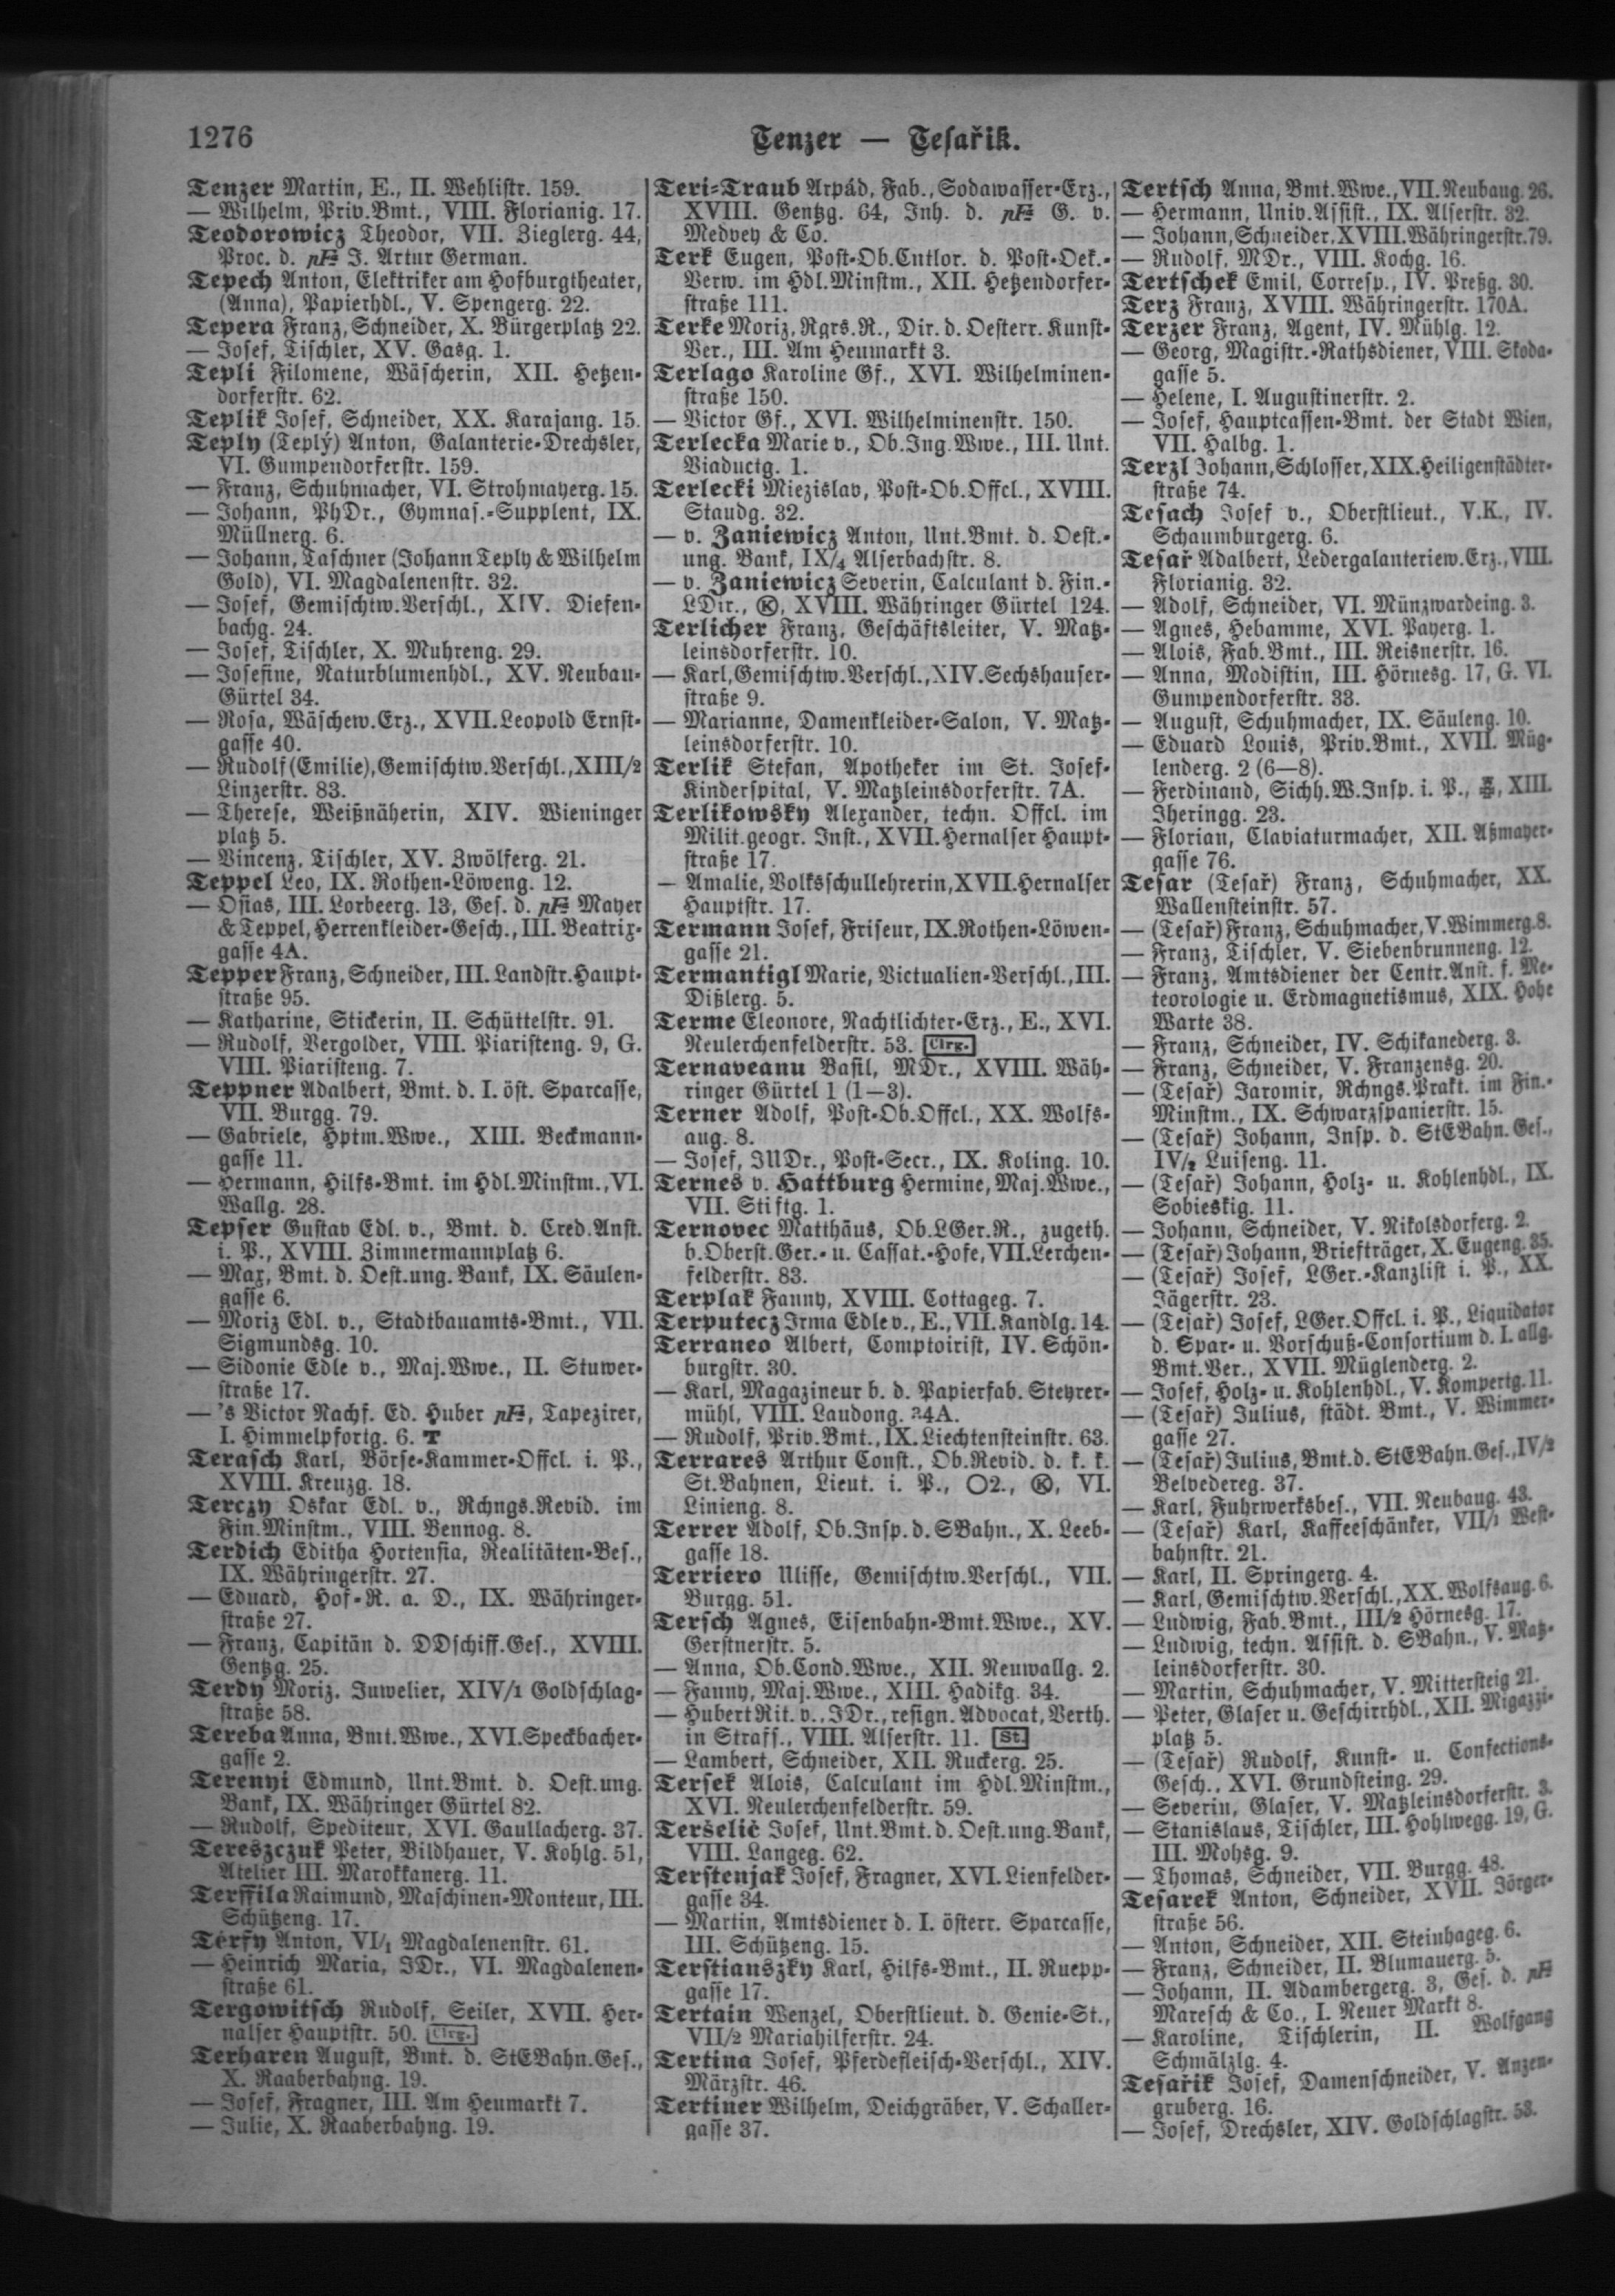 1276
Tenzer — Tesařik.
Tenzer Martin, E., II. Wehlistr. 159.
— Wilhelm, Priv.Bmt., VIII. Florianig. 17.
Teodorowicz Theodor, VII. Zieglerg. 44,
Proc. d. J. Artur German.
Tepech Anton, Elektriker am Hofburgtheater,
(Anna), Papierhdl., V. Spengerg. 22.
Tepera Franz, Schneider, X. Bürgerplatz 22.
— Josef, Tischler, XV. Gasg. 1.
Tepli Filomene, Wäscherin, XII. Hetzen-
dorferstr. 62.
Teplik Josef, Schneider, XX. Karajang. 15.
Teply (Teplý) Anton, Galanterie-Drechsler,
VI. Gumpendorferstr. 159.
— Franz, Schuhmacher, VI. Strohmayerg. 15.
— Johann, PhDr., Gymnas.-Supplent, IX.
Müllnerg. 6.
— Johann, Taschner (Johann Teply & Wilhelm
Gold), VI. Magdalenenstr. 32.
— Josef, Gemischtw.Verschl., XIV. Diefen-
bachg. 24.
— Josef, Tischler, X. Muhreng. 29.
— Josefine, Naturblumenhdl., XV. Neubau-
Gürtel 34.
— Rosa, Wäschew.Erz., XVII. Leopold Ernst-
gasse 40.
— Rudolf (Emilie), Gemischtw.Verschl., XIII/2
Linzerstr. 83.
— Therese, Weißnäherin, XIV. Wieninger
platz 5.
— Vincenz, Tischler, XV. Zwölferg. 21.
Teppel Leo, IX. Rothen-Löweng. 12.
— Osias, III. Lorbeerg. 13, Ges. d. Mayer
& Teppel, Herrenkleider-Gesch., III. Beatrix-
gasse 4A.
Tepper Franz, Schneider, III. Landstr. Haupt-
straße 95.
— Katharine, Stickerin, II. Schüttelstr. 91.
— Rudolf, Vergolder, VIII. Piaristeng. 9, G.
VIII. Piaristeng. 7.
Teppner Adalbert, Bmt. d. I. öst. Sparcasse,
VII. Burgg. 79.
— Gabriele, Hptm.Wwe., XIII. Beckmann-
gasse 11.
— Hermann, Hilfs-Bmt. im Hdl.Minstm., VI.
Wallg. 28.
Tepser Gustav Edl. v., Bmt. d. Cred.Anst.
i. P., XVIII. Zimmermannplatz 6.
— Max, Bmt. d. Oest.ung. Bank, IX. Säulen-
gasse 6.
— Moriz Edl. v., Stadtbauamts-Bmt., VII.
Sigmundsg. 10.
— Sidonie Edle v., Maj.Wwe., II. Stuwer-
straße 17.
— 's Victor Nachf. Ed. Huber, Tapezirer,
I. Himmelpfortg. 6. T
Terasch Karl, Börse-Kammer-Offcl. i. P.,
XVIII. Kreuzg. 18.
Terczy Oskar Edl. v., Rchngs.Revid. im
Fin.Minstm., VIII. Bennog. 8.
Terdich Editha Hortensia, Realitäten-Bes.,
IX. Währingerstr. 27.
— Eduard, Hof-R. a. D., IX. Währinger-
straße 27.
— Franz, Capitän d. DDschiff.Ges., XVIII.
Gentzg. 25.
Terdy Moriz, Juwelier, XIV/1 Goldschlag-
straße 58.
Tereba Anna, Bmt.Wwe., XVI. Speckbacher-
gasse 2.
Terenyi Edmund, Unt.Bmt. d. Oest.ung.
Bank, IX. Währinger Gürtel 82.
— Rudolf, Spediteur, XVI. Gaullacherg. 37.
Tereszczuk Peter, Bildhauer, V. Kohlg. 51,
Atelier III. Marokkanerg. 11.
Terffila Raimund, Maschinen-Monteur, III.
Schützeng. 17.
Térfy Anton, VI/1 Magdalenenstr. 61.
— Heinrich Maria, JDr., VI. Magdalenen-
straße 61.
Tergowitsch Rudolf, Seiler, XVII. Her-
nalser Hauptstr. 50. Clrg.
Terharen August, Bmt. d. StEBahn.Ges.,
X. Raaberbahng. 19.
— Josef, Fragner, III. Am Heumarkt 7.
— Julie, X. Raaberbahng. 19.
Teri-Traub Arpád, Fab., Sodawasser-Erz.,
XVIII. Gentzg. 64, Inh. d. G. v.
Medvey & Co.
Terk Eugen, Post-Ob.Cntlor. d. Post-Oek.-
Verw. im Hdl.Minstm., XII. Hetzendorfer-
straße 111.
Terke Moriz, Rgrs.R., Dir. d. Oesterr. Kunst-
Ver., III. Am Heumarkt 3.
Terlago Karoline Gf., XVI. Wilhelminen-
straße 150.
— Victor Gf., XVI. Wilhelminenstr. 150.
Terlecka Marie v., Ob.Ing.Wwe., III. Unt.
Viaductg. 1.
Terlecki Miezislav, Post-Ob.Offcl., XVIII.
Staudg. 32.
— v. Zaniewicz Anton, Unt.Bmt. d. Oest.-
ung. Bank, IX/4 Alserbachstr. 8.
— v. Zaniewicz Severin, Calculant d. Fin.-
LDir., Ⓚ, XVIII. Währinger Gürtel 124.
Terlicher Franz, Geschäftsleiter, V. Matz-
leinsdorferstr. 10.
— Karl, Gemischtw.Verschl., XIV. Sechshauser-
straße 9.
— Marianne, Damenkleider-Salon, V. Matz-
leinsdorferstr. 10.
Terlik Stefan, Apotheker im St. Josef-
Kinderspital, V. Matzleinsdorferstr. 7A.
Terlikowsky Alexander, techn. Offcl. im
Milit.geogr. Inst., XVII. Hernalser Haupt-
straße 17.
— Amalie, Volksschullehrerin, XVII. Hernalser
Hauptstr. 17.
Termann Josef, Friseur, IX. Rothen-Löwen-
gasse 21.
Termantigl Marie, Victualien-Verschl., III.
Dißlerg. 5.
Terme Eleonore, Nachtlichter-Erz., E., XVI.
Neulerchenfelderstr. 53. Clrg.
Ternaveanu Basil, MDr., XVIII. Wäh-
ringer Gürtel 1 (1—3).
Terner Adolf, Post-Ob.Offcl., XX. Wolfs-
aug. 8.
— Josef, JUDr., Post-Secr., IX. Koling. 10.
Ternes v. Hattburg Hermine, Maj.Wwe.,
VII. Stiftg. 1.
Ternovec Matthäus, Ob.LGer.R., zugeth.
b. Oberst.Ger.- u. Cassat.-Hofe, VII. Lerchen-
felderstr. 83.
Terplak Fanny, XVIII. Cottageg. 7.
Terputecz Irma Edle v., E., VII. Kandlg. 14.
Terraneo Albert, Comptoirist, IV. Schön-
burgstr. 30.
— Karl, Magazineur b. d. Papierfab. Steyrer-
mühl, VIII. Laudong. 24A.
— Rudolf, Priv.Bmt., IX. Liechtensteinstr. 63.
Terrares Arthur Const., Ob.Revid. d. k. k.
St.Bahnen, Lieut. i. P., O2., Ⓚ, VI.
Linieng. 8.
Terrer Adolf, Ob.Insp. d. SBahn., X. Leeb-
gasse 18.
Terriero Ulisse, Gemischtw.Verschl., VII.
Burgg. 51.
Tersch Agnes, Eisenbahn-Bmt.Wwe., XV.
Gerstnerstr. 5.
— Anna, Ob.Cond.Wwe., XII. Neuwallg. 2.
— Fanny, Maj.Wwe., XIII. Hadikg. 34.
— Hubert Rit. v., JDr., resign. Advocat, Verth.
in Straff., VIII. Alserstr. 11. St.
— Lambert, Schneider, XII. Ruckerg. 25.
Tersek Alois, Calculant im Hdl.Minstm.,
XVI. Neulerchenfelderstr. 59.
Teršelič Josef, Unt.Bmt. d. Oest.ung. Bank,
VIII. Langeg. 62.
Terstenjak Josef, Fragner, XVI. Lienfelder-
gasse 34.
— Martin, Amtsdiener d. I. österr. Sparcasse,
III. Schützeng. 15.
Terstianszky Karl, Hilfs-Bmt., II. Ruepp-
gasse 17.
Tertain Wenzel, Oberstlieut. d. Genie-St.,
VII/2 Mariahilferstr. 24.
Tertina Josef, Pferdefleisch-Verschl., XIV.
Märzstr. 46.
Tertiner Wilhelm, Deichgräber, V. Schaller-
gasse 37.
Tertsch Anna, Bmt.Wwe., VII. Neubaug. 26.
— Hermann, Univ.Assist., IX. Alserstr. 32.
— Johann, Schneider, XVIII. Währingerstr. 79.
— Rudolf, MDr., VIII. Kochg. 16.
Tertschek Emil, Corresp., IV. Preßg. 30.
Terz Franz, XVIII. Währingerstr. 170A.
Terzer Franz, Agent, IV. Mühlg. 12.
— Georg, Magistr.-Rathsdiener, VIII. Skoda-
gasse 5.
— Helene, I. Augustinerstr. 2.
— Josef, Hauptcassen-Bmt. der Stadt Wien,
VII. Halbg. 1.
Terzl Johann, Schlosser, XIX. Heiligenstädter-
straße 74.
Tesach Josef v., Oberstlieut., V.K., IV.
Schaumburgerg. 6.
Tesař Adalbert, Ledergalanteriew.Erz., VIII.
Florianig. 32.
— Adolf, Schneider, VI. Münzwardeing. 3.
— Agnes, Hebamme, XVI. Payerg. 1.
— Alois, Fab.Bmt., III. Reisnerstr. 16.
— Anna, Modistin, III. Hörnesg. 17, G. VI.
Gumpendorferstr. 33.
— August, Schuhmacher, IX. Säuleng. 10.
— Eduard Louis, Priv.Bmt., XVII. Müg-
lenderg. 2 (6—8).
— Ferdinand, Sichh.W.Insp. i. P., XIII.
Jheringg. 23.
— Florian, Claviaturmacher, XII. Aßmayer-
gasse 76.
Tesar (Tesař) Franz, Schuhmacher, XX.
Wallensteinstr. 57.
— (Tesař) Franz, Schuhmacher, V. Wimmerg. 8.
— Franz, Tischler, V. Siebenbrunneng. 12.
— Franz, Amtsdiener der Centr.Anst. f. Me-
teorologie u. Erdmagnetismus, XIX. Hohe
Warte 38.
— Franz, Schneider, IV. Schikanederg. 3.
— Franz, Schneider, V. Franzensg. 20.
— (Tesař) Jaromir, Rchngs.Prakt. im Fin.-
Minstm., IX. Schwarzspanierstr. 15.
— (Tesař) Johann, Insp. d. StEBahn.Ges.,
IV/2 Luiseng. 11.
— (Tesař) Johann, Holz- u. Kohlenhdl., IX.
Sobieskig. 11.
— Johann, Schneider, V. Nikolsdorferg. 2.
— (Tesař) Johann, Briefträger, X. Eugeng. 35.
— (Tesař) Josef, LGer.-Kanzlist i. P., XX.
Jägerstr. 23.
— (Tesař) Josef, LGer.Offcl. i. P., Liquidator
d. Spar- u. Vorschuß-Consortium d. I. allg.
Bmt.Ver., XVII. Müglenderg. 2.
— Josef, Holz- u. Kohlenhdl., V. Kompertg. 11.
— (Tesař) Julius, städt. Bmt., V. Wimmer-
gasse 27.
— (Tesař) Julius, Bmt. d. StEBahn.Ges., IV/2
Belvedereg. 37.
— Karl, Fuhrwerksbes., VII. Neubaug. 43.
— (Tesař) Karl, Kaffeeschänker, VII/1 West-
bahnstr. 21.
— Karl, II. Springerg. 4.
— Karl, Gemischtw.Verschl., XX. Wolfsaug. 6.
— Ludwig, Fab.Bmt., III/2 Hörnesg. 17.
— Ludwig, techn. Assist. d. SBahn., V. Matz-
leinsdorferstr. 30.
— Martin, Schuhmacher, V. Mittersteig 21.
— Peter, Glaser u. Geschirrhdl., XII. Migazzi-
platz 5.
— (Tesař) Rudolf, Kunst- u. Confections-
Gesch., XVI. Grundsteing. 29.
— Severin, Glaser, V. Matzleinsdorferstr. 3.
— Stanislaus, Tischler, III. Hohlwegg. 19, G.
III. Mohsg. 9.
— Thomas, Schneider, VII. Burgg. 48.
Tesarek Anton, Schneider, XVII. Jörger-
straße 56.
— Anton, Schneider, XII. Steinhageg. 6.
— Franz, Schneider, II. Blumauerg. 5.
— Johann, II. Adambergerg. 3, Ges. d.
Maresch & Co., I. Neuer Markt 8.
— Karoline, Tischlerin, II. Wolfgang
Schmälzlg. 4.
Tesařik Josef, Damenschneider, V. Anzen-
gruberg. 16.
— Josef, Drechsler, XIV. Goldschlagstr. 53.